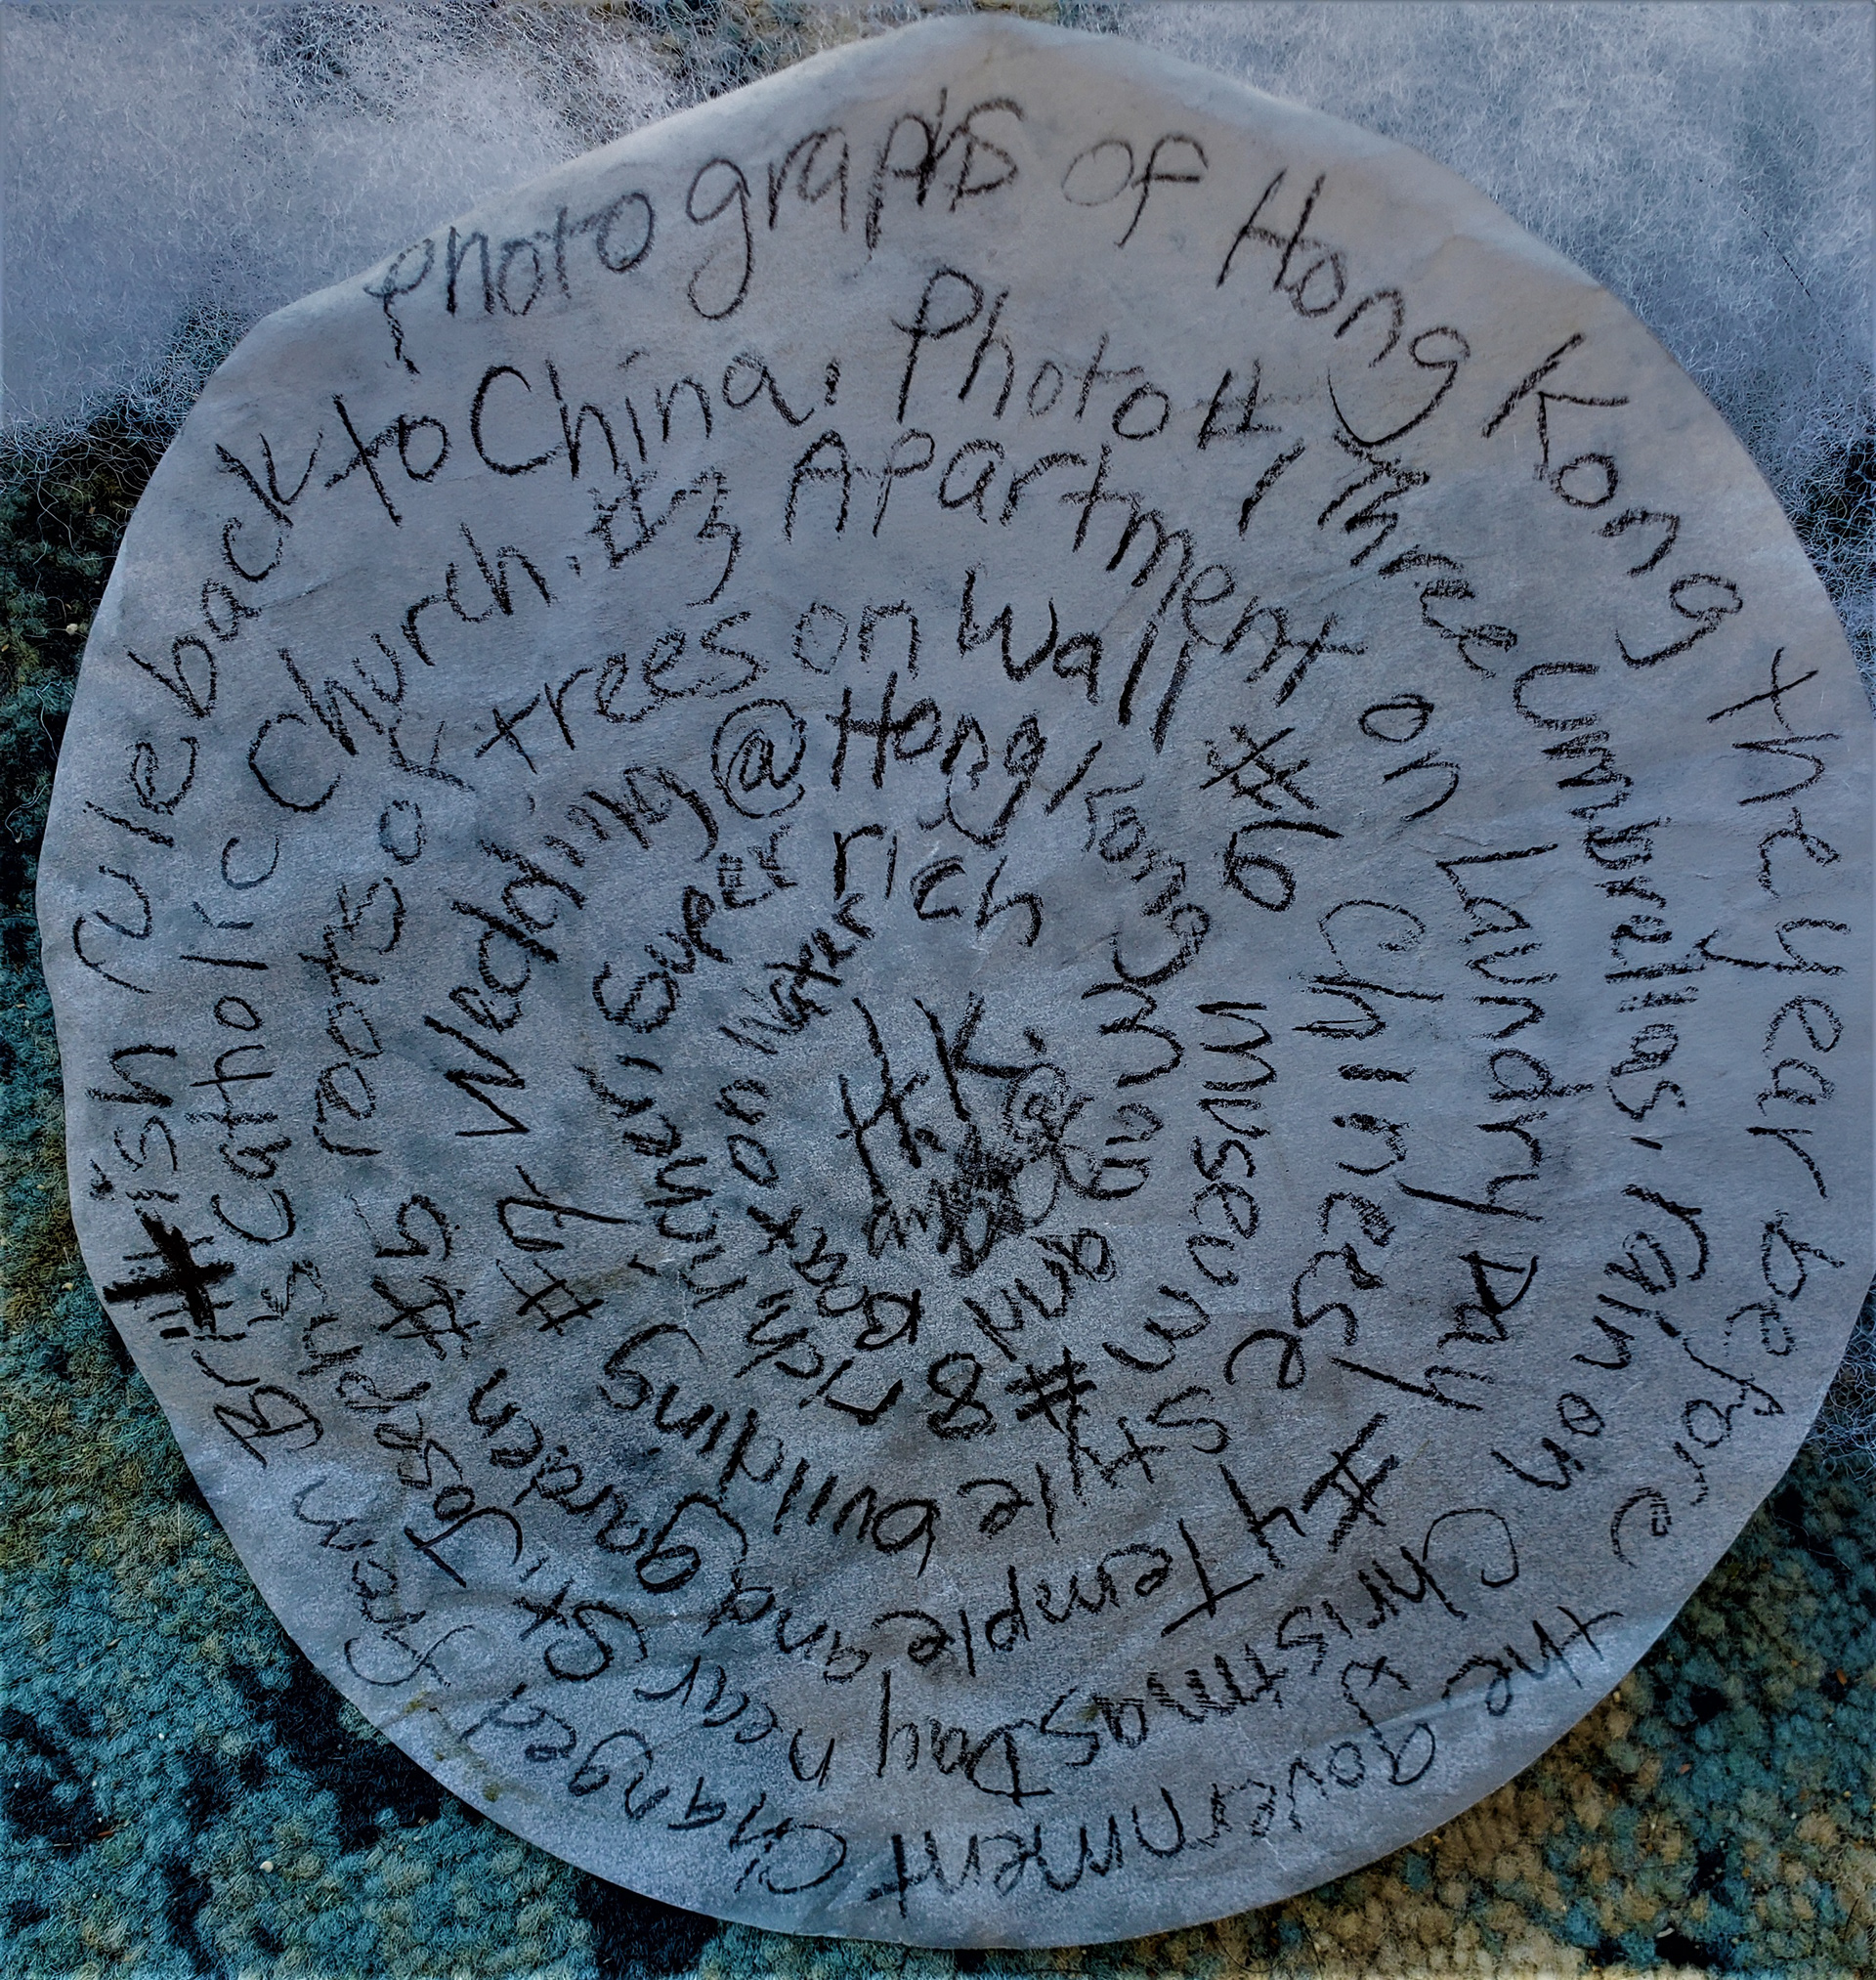 Photographs of Hong Kong the year before the government changed from British rule back to China, Photo #1, Three Umbrellas, rain on Christmas Day near St. Joseph's Catholic Church. #3 Apartment on Laundry Day #4 Temple and garden #5 roots of trees on wall #6 Chinese style building #7 Wedding @ Hong Kong museum #8 rich n' richer, super rich boat on water H.K.